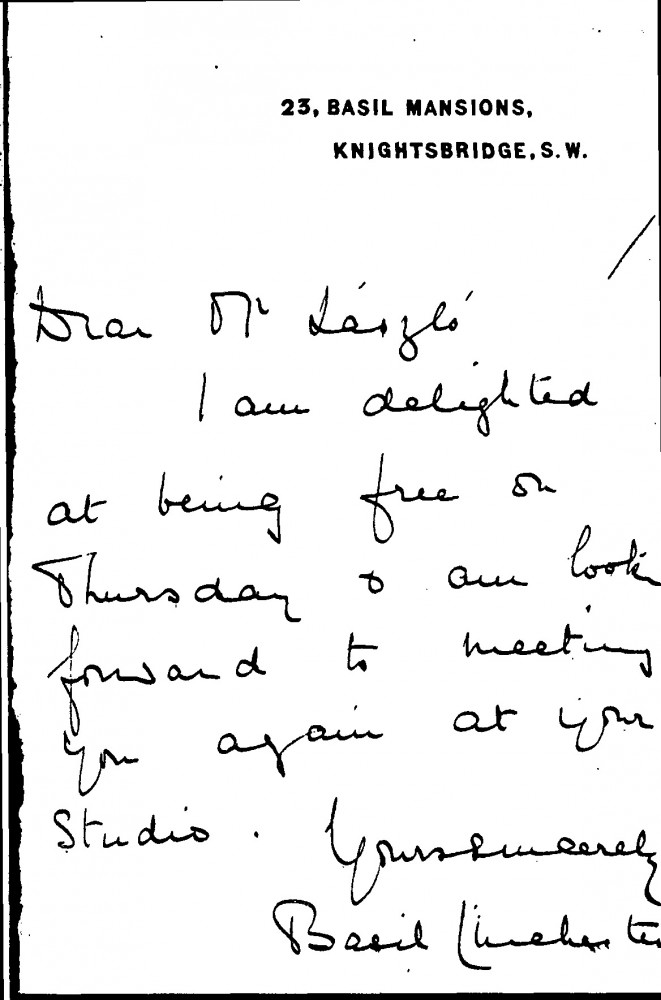 23, BASIL MANSIONS,
KNIGHTSBRIDGE, S.W.
Dear Mr László
I am delighted
at being free on
Thursday & am look
forward to meeting
you again at your
Studio.
Yours sincerely
Basil